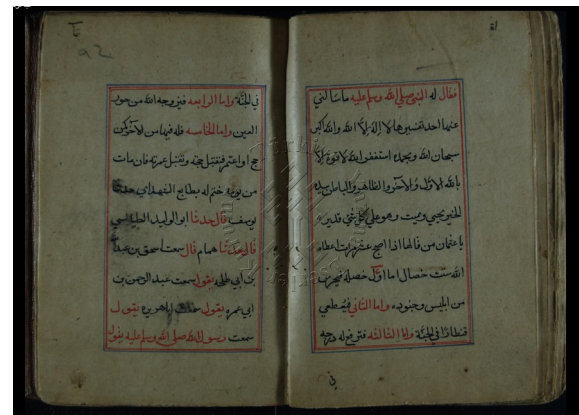 ٤١
فقال له النبي صلي الله وسلم عليه ماسالني
عنها احد تفسيرها لا اله الا الله والله اكبر
سبحان الله وبحمده استغفر الله لا قوة الا
بالله الاول والاخر والظاهر والباطن بيده
الخير يحيي ويميت وهو علي كل شئ قدير
ياعثمان من قالها اذا اصبح عشر مرات اعطاه
الله ست خصال اما اول خصلة فيحرس
من ابليس وجنوده واما الثاني فيعطي
قنطارا في الجنة واما الثالثه فترفع له درجه
في
في الجنة واما الرابعه فيزوجه الله من حور
العين واما الخامسه فله فيها من الاجر كمن
حج او اعتمر فتقبل حجته وتقبل عمرته فان مات
من يومه ختم له بطابع الشهداء حدثنا
يوسف قال حدثنا ابو الوليد الطيالسي
قال حدثنا همام قال سمعت اسحق بن عبد الله
بن ابي طلحه يقول سمعت عبد الرحمن بن
ابي عمره يقول سمعت ابا هريره يقول
سمعت رسول الله صلي الله وسلم عليه يقول